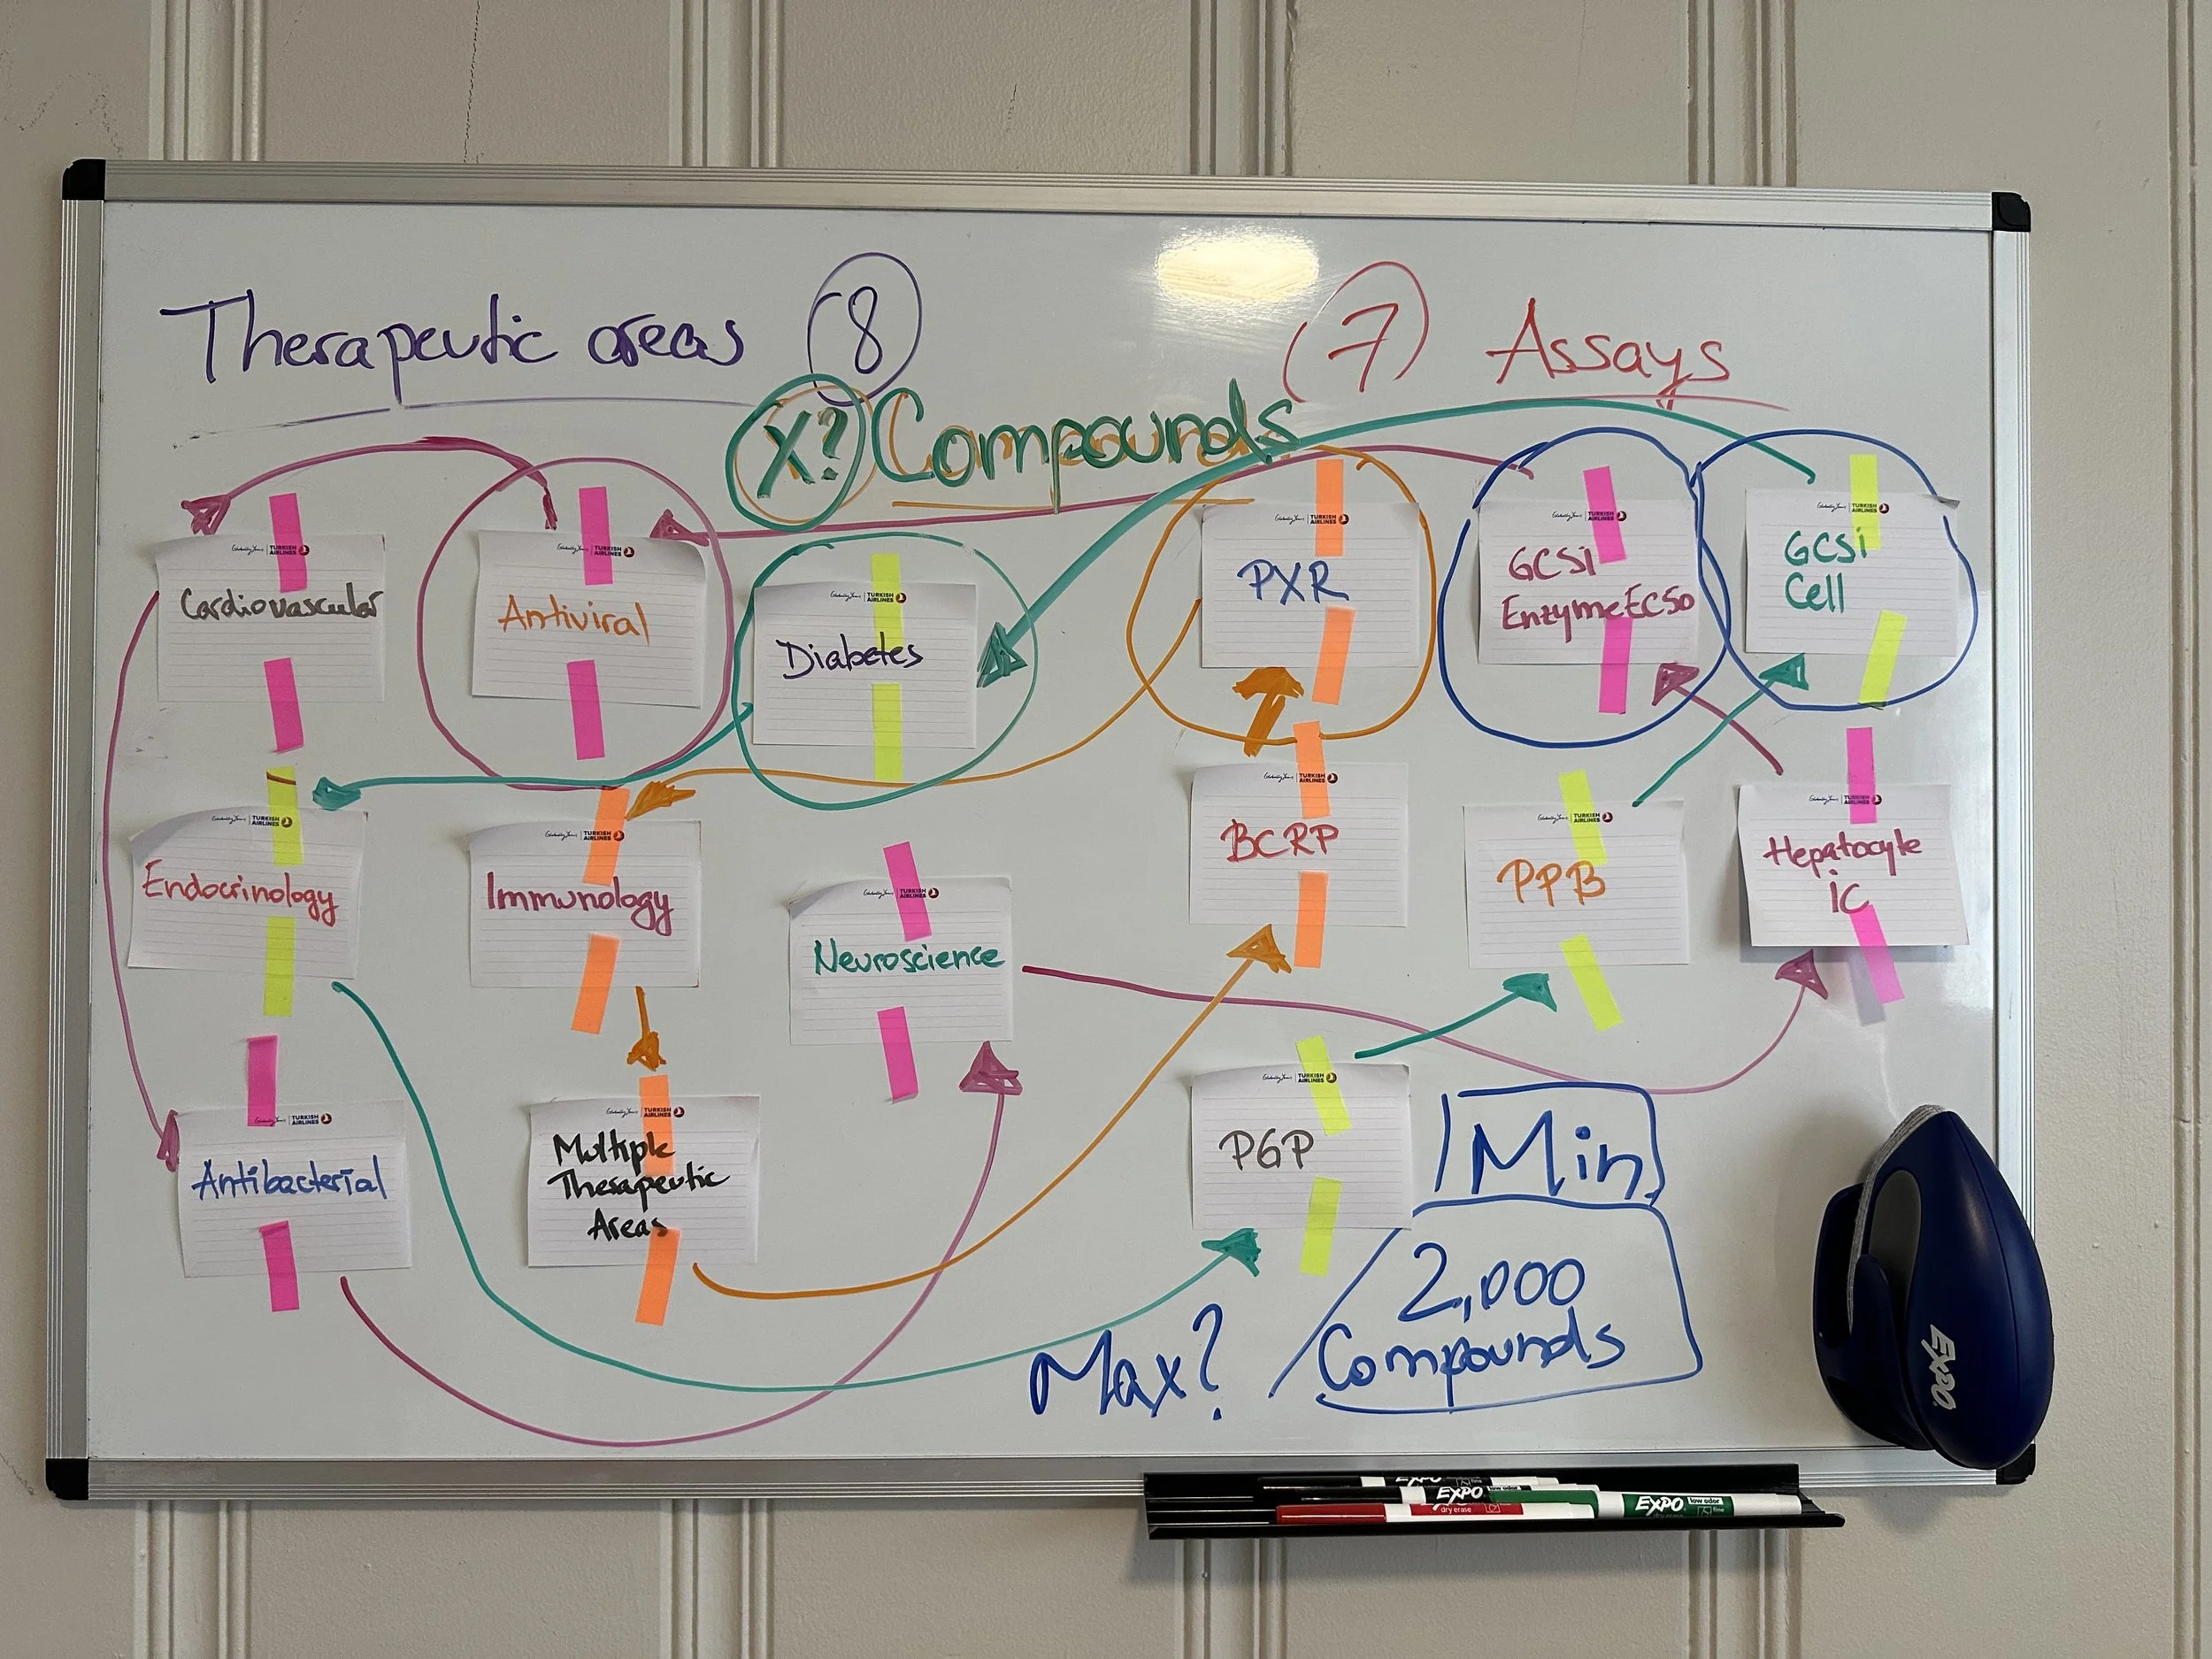 Therapeutic areas 8
7 Assays
X? Compounds
TURKISH AIRLINES
Cardiovascular
TURKISH AIRLINES
Antiviral
TURKISH AIRLINES
Diabetes
TURKISH AIRLINES
PXR
TURKISH AIRLINES
GCSi
EnzymeEC50
TURKISH AIRLINES
GCSi
Cell
TURKISH AIRLINES
Endocrinology
TURKISH AIRLINES
Immunology
TURKISH AIRLINES
Neuroscience
TURKISH AIRLINES
BCRP
TURKISH AIRLINES
PPB
TURKISH AIRLINES
Hepatocyte
iC
TURKISH AIRLINES
Antibacterial
TURKISH AIRLINES
Multiple
Therapeutic
Areas
TURKISH AIRLINES
PGP
Min
2,000
Compounds
Max?
EXPO
EXPO
EXPO
dry erase
EXPO low odor
fine
dry erase